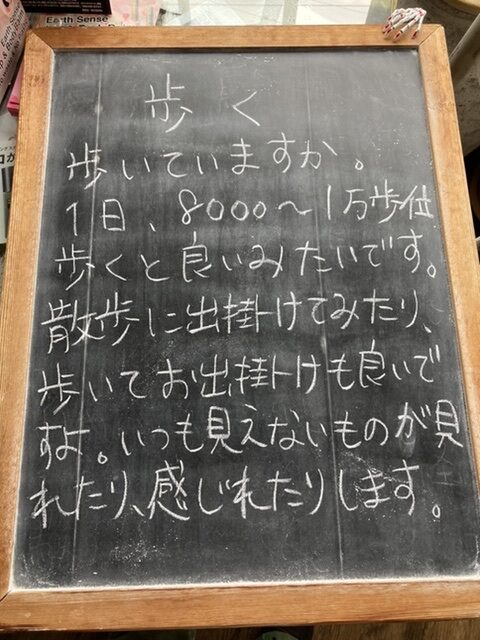 Earth Sense
歩く
歩いていますか。
1日、8000〜1万歩位
歩くと良いみたいです。
散歩に出掛けてみたり、
歩いてお出掛けも良いで
すよ。いつも見えないものが見
れたり、感じれたりします。